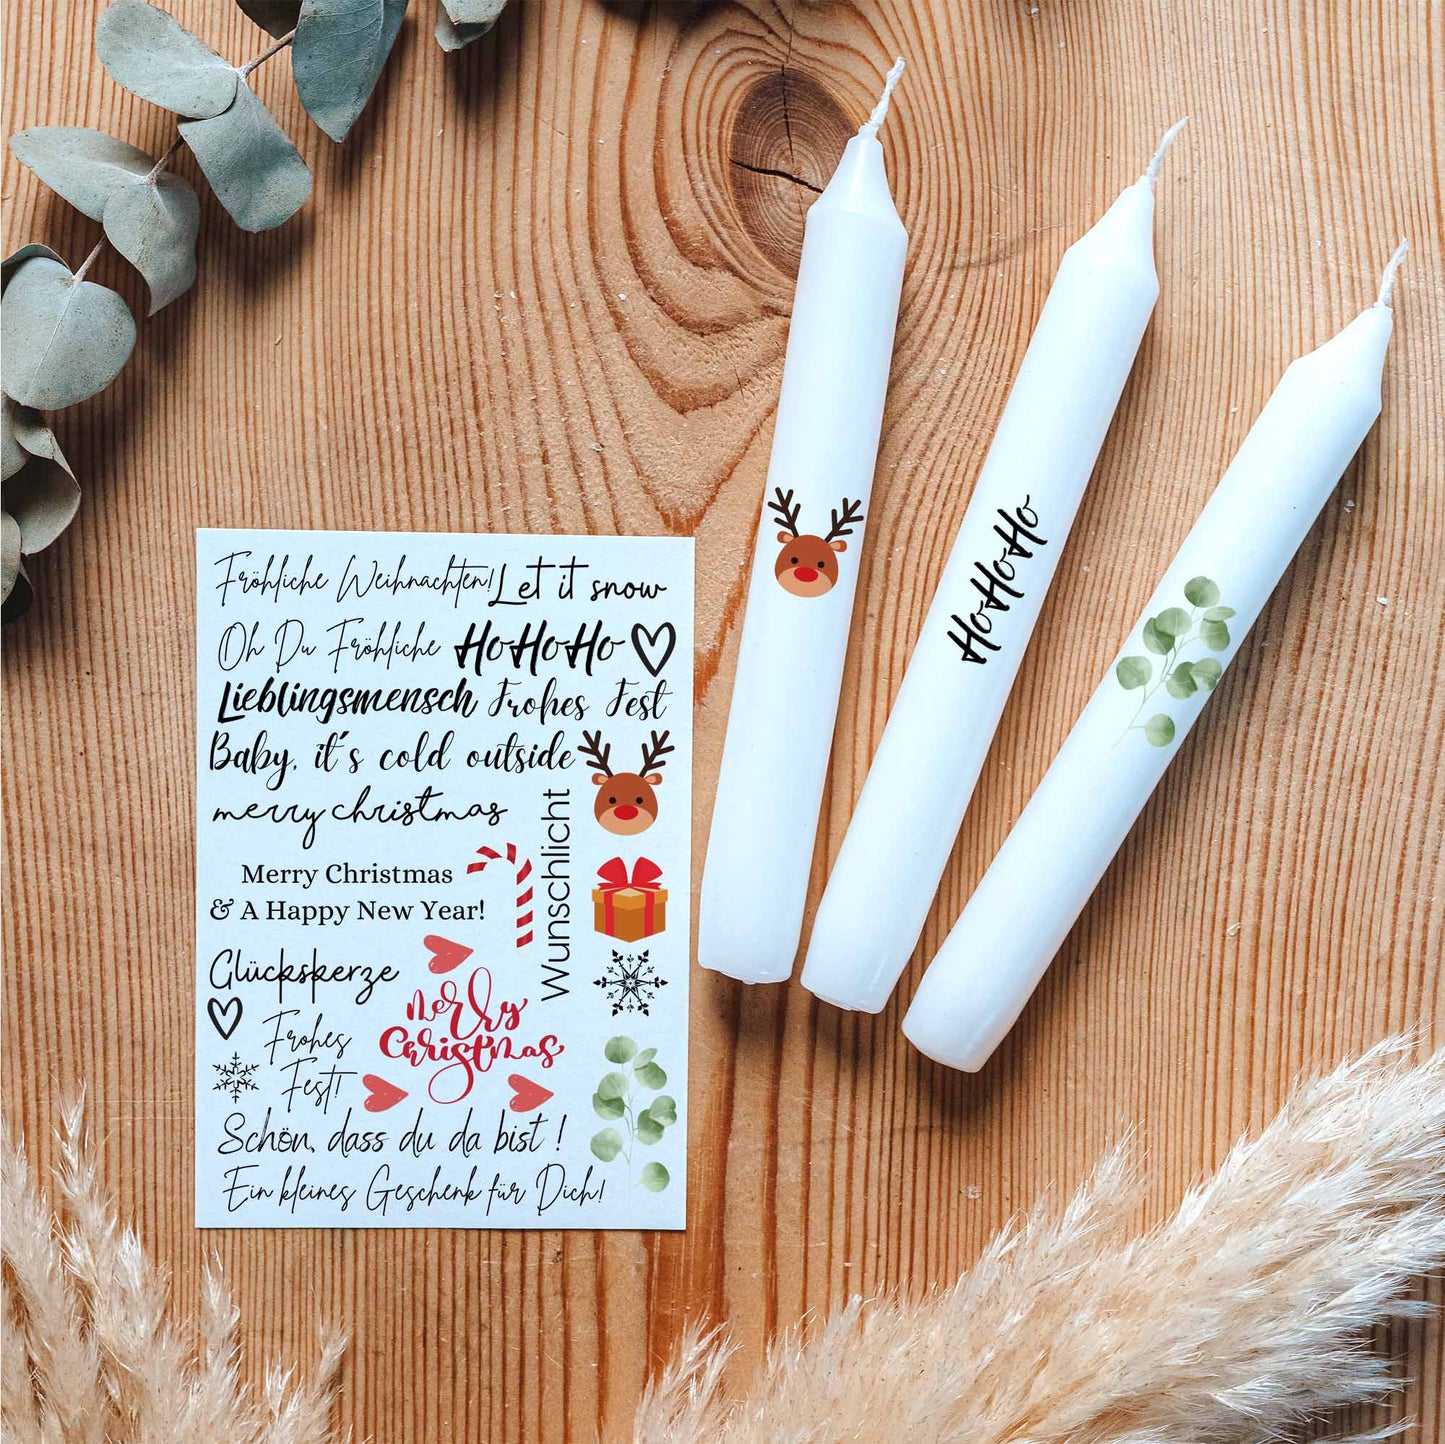 Fröhliche Weihnachten! Let it snow
Oh Du Fröhliche HoHoHo
Lieblingsmensch Frohes Fest
Baby, it´s cold outside
merry christmas
Wunschlicht
Merry Christmas
& A Happy New Year!
Glückskerze
Merry
Christmas
Frohes
Fest!
Schön, dass du da bist!
Ein kleines Geschenk für Dich!
HoHoHo